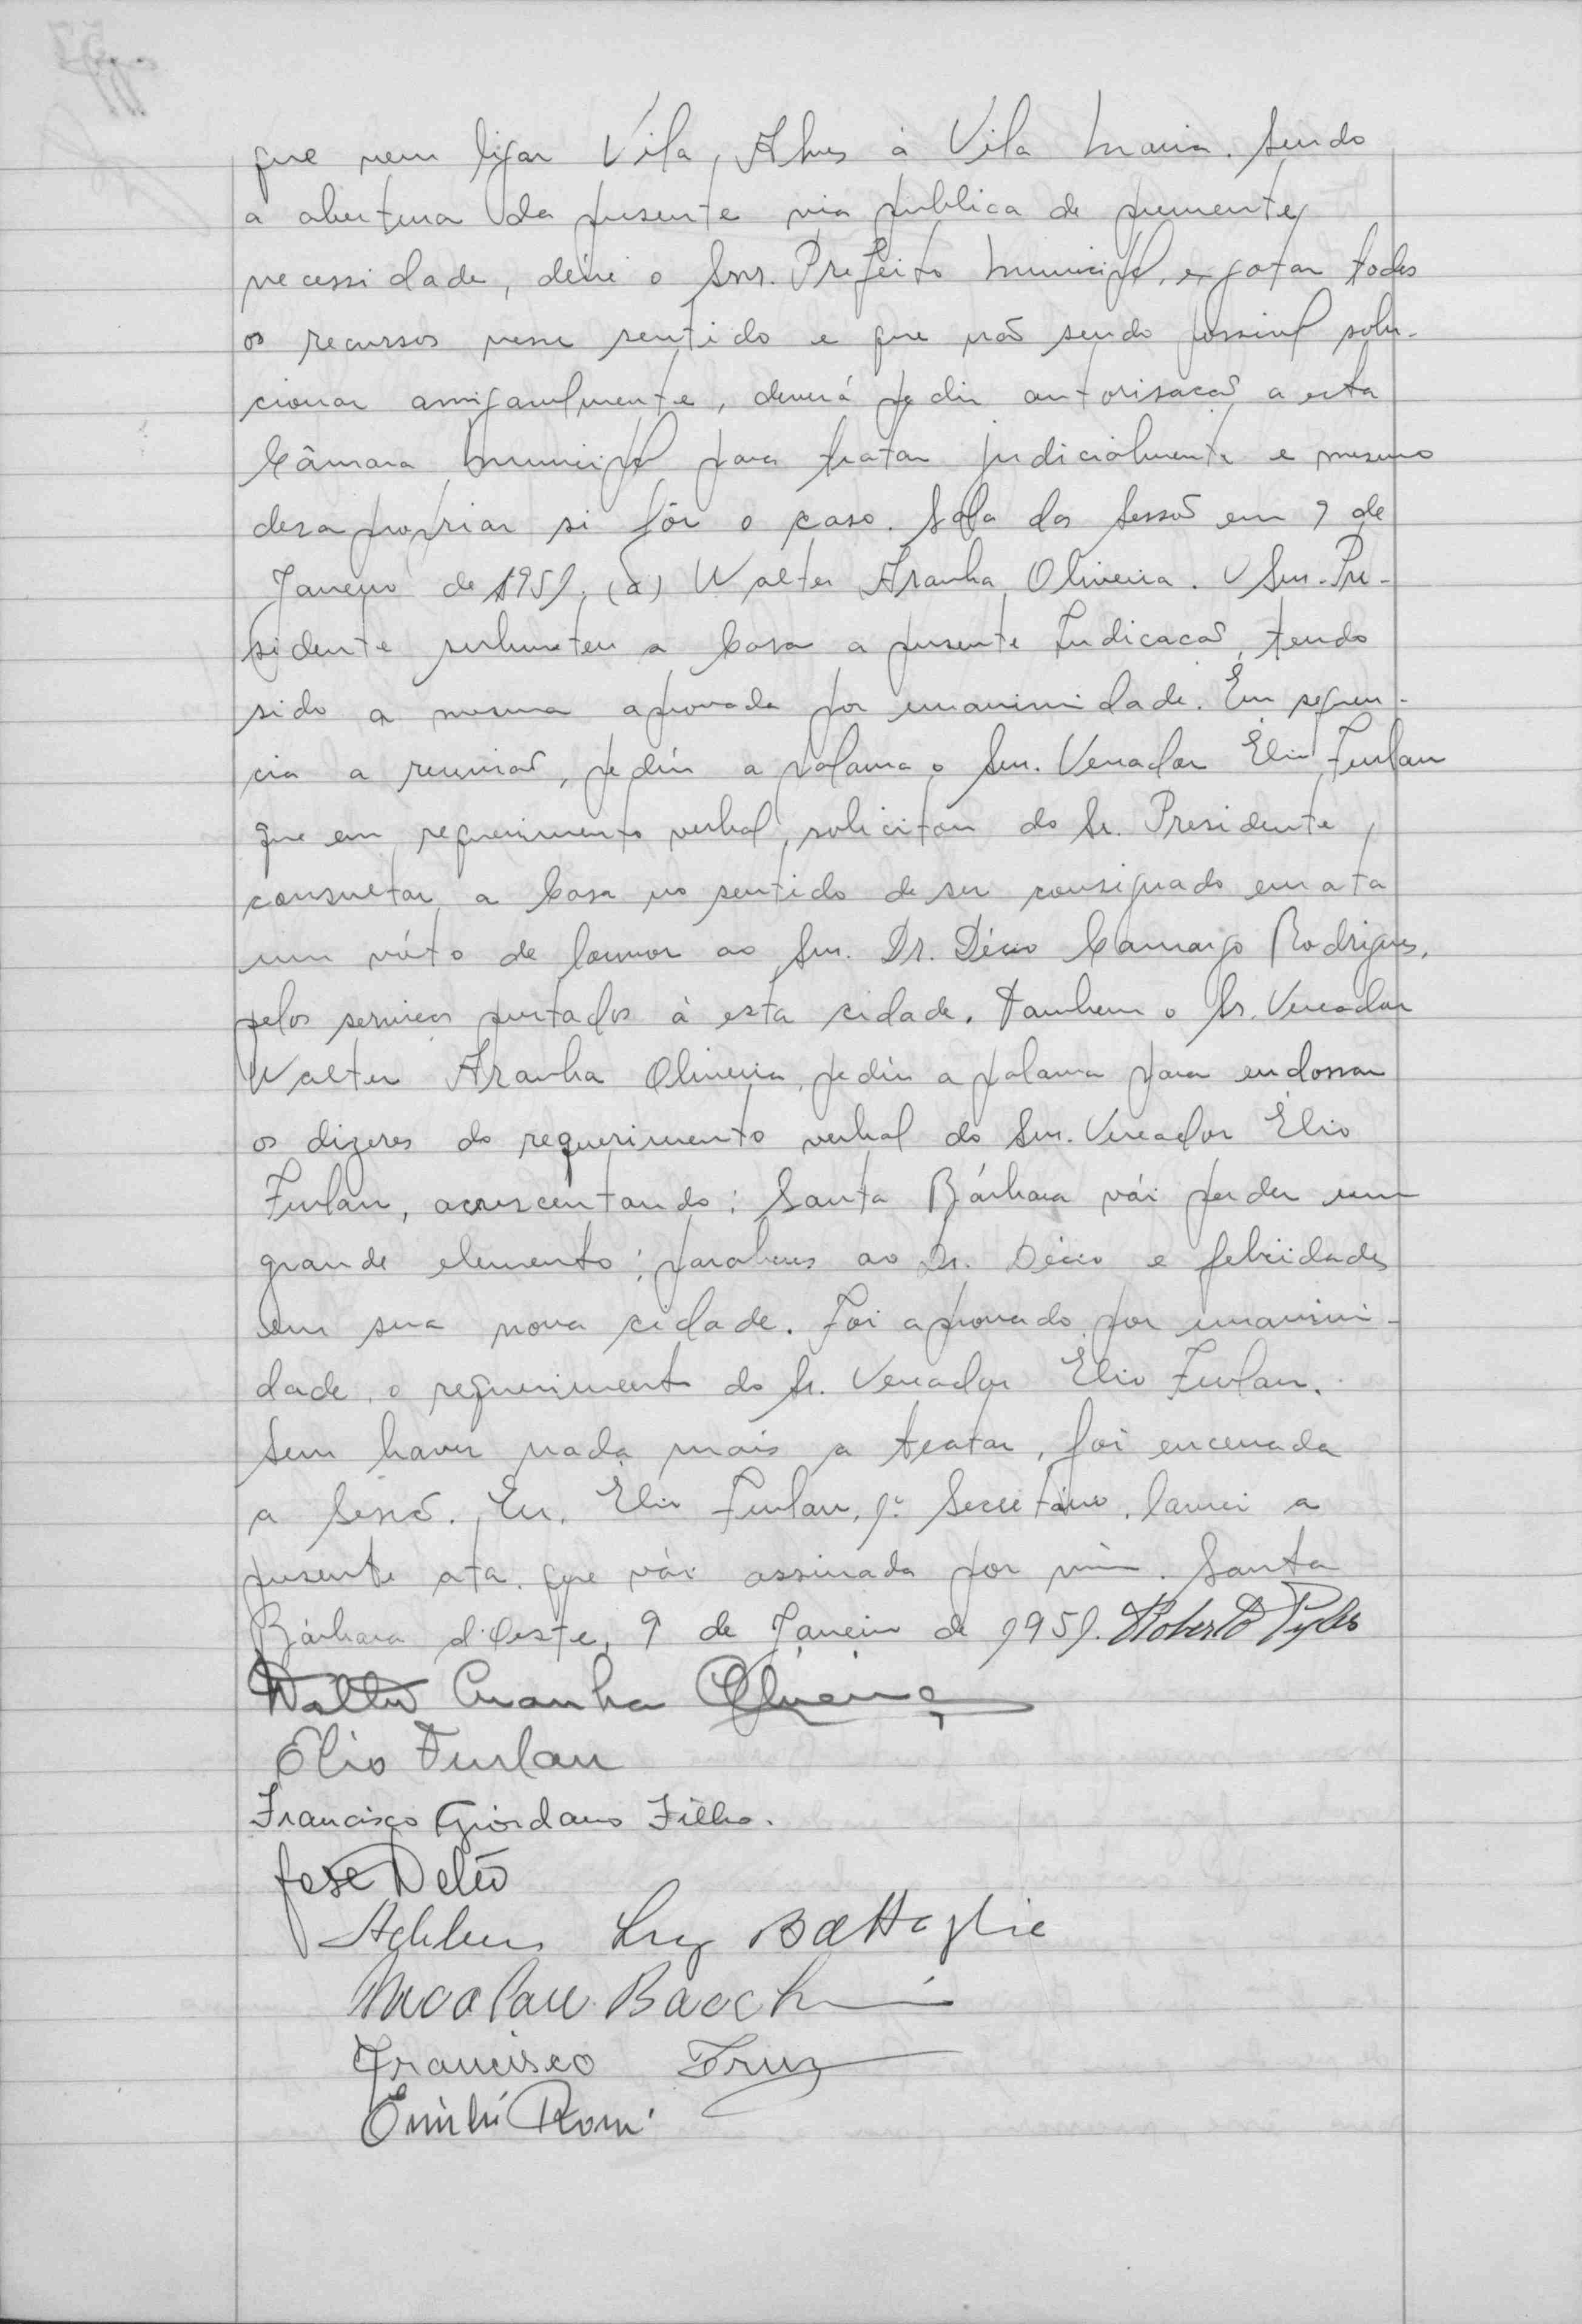 que vem ligar Vila Alves à Vila Maria. Sendo
a abertura da presente via publica de premente
necessidade, déve o Snr. Prefeito Municipal, esgotar todos
os recursos nesse sentido e que não sendo possivel solu-
cionar amigavelmente, deverá pedir autorisação a esta
Câmara Municipal para tratar judicialmente e mesmo
desapropriar si fôr o caso. Sala das Sessão em 9 de
Janeiro de 1959. (a) Walter Aranha Oliveira. O Snr. Pre-
sidente submeteu a Casa a presente Indicação, tendo
sido a mesma aprovada por unanimidade. Em sequen-
cia a reunião, pediu a palavra o Snr. Vereador Élio Furlan
que em requerimento verbal, solicitou do Sr. Presidente,
consultar a Casa no sentido de ser consignado em ata
um vóto de louvor ao Snr. Dr. Décio Camargo Rodrigues,
pelos serviços prestados à esta cidade. Tambem o Sr. Vereador
Walter Aranha Oliveira, pediu a palavra para endossar
os dizeres do requerimento verbal do Snr. Vereador Élio
Furlan, acrescentando: Santa Bárbara vái perder um
grande elemento; parabens ao Dr. Décio e felicidades
em sua nova cidade. Foi aprovado por unanimi-
dade, o requerimento do Sr. Vereador Élio Furlan.
Sem haver nada mais a tratar, foi encerrada
a Sessão. Eu, Élio Furlan, 1º Secretário, lavrei a
presente ata, que vái assinada por mim. Santa
Bárbara d'Oeste, 9 de Janeiro de 1959. Roberto Pyles
Walter Aranha Oliveira
Elio Furlan
Francisco Giordano Filho.
José Delto
Luiz Battaglia
Nicolau Bacchi
Francisco Fruz
Emilio Romi